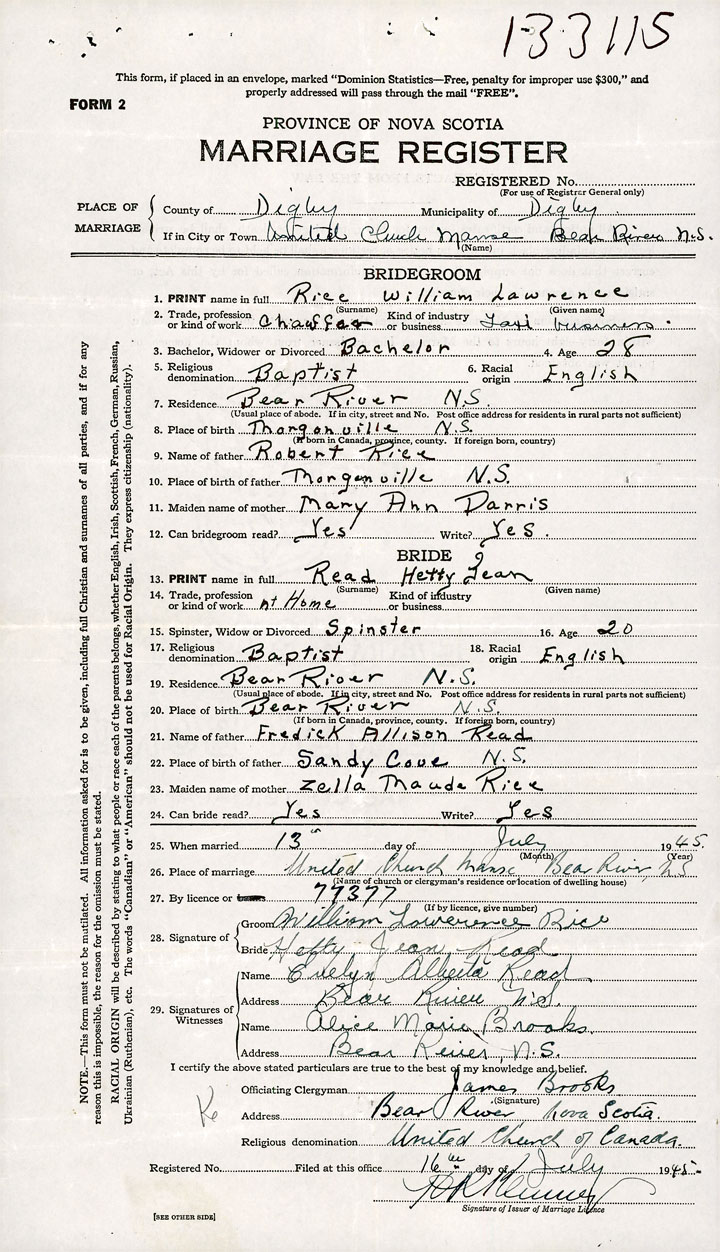 133115
This form, if placed in an envelope, marked "Dominion Statistics—Free, penalty for improper use $300," and
properly addressed will pass through the mail "FREE".
FORM 2
PROVINCE OF NOVA SCOTIA
MARRIAGE REGISTER
REGISTERED No.
(For use of Registrar General only)
PLACE OF MARRIAGE
County of Digby Municipality of Digby
If in City or Town United Church Manse Bear River N.S.
(Name)
BRIDEGROOM
1. PRINT name in full Rice William Lawrence
(Surname) (Given name)
2. Trade, profession or kind of work Chauffer Kind of industry or business Taxi business.
3. Bachelor, Widower or Divorced Bachelor 4. Age 28
5. Religious denomination Baptist 6. Racial origin English
7. Residence Bear River N.S.
(Usual place of abode. If in city, street and No. Post office address for residents in rural parts not sufficient)
8. Place of birth Thorgonville N.S.
(If born in Canada, province, county. If foreign born, country)
9. Name of father Robert Rice
10. Place of birth of father Thorgonville N.S.
11. Maiden name of mother Mary Ann Darris
12. Can bridegroom read? Yes Write? Yes.
BRIDE
13. PRINT name in full Read Hetty Jean
(Surname) (Given name)
14. Trade, profession or kind of work At Home Kind of industry or business
15. Spinster, Widow or Divorced Spinster 16. Age 20
17. Religious denomination Baptist 18. Racial origin English
19. Residence Bear River N.S.
(Usual place of abode. If in city, street and No. Post office address for residents in rural parts not sufficient)
20. Place of birth Bear River N.S.
(If born in Canada, province, county. If foreign born, country)
21. Name of father Fredick Allison Read
22. Place of birth of father Sandy Cove N.S.
23. Maiden name of mother Zella Maude Rice
24. Can bride read? Yes Write? Yes
25. When married 13th day of July 1945.
(Month) (Year)
26. Place of marriage United Church Manse Bear River NS
(Name of church or clergyman's residence or location of dwelling house)
27. By licence or 77377
(If by licence, give number)
28. Signature of
Groom William Lawerence Rice
Bride Hetty Jean Read
29. Signatures of Witnesses
Name Evelyn Alberta Read
Address Bear River N.S.
Name Alice Marie Brooks.
Address Bear River, N.S.
I certify the above stated particulars are true to the best of my knowledge and belief.
Officiating Clergyman James Brooks
(Signature)
Address Bear River Nova Scotia.
Religious denomination United Church of Canada.
Registered No. Filed at this office 16th day of July 1945
Signature of Issuer of Marriage Licence
[SEE OTHER SIDE]
NOTE.—This form must not be mutilated. All information asked for is to be given, including full Christian and surnames of all parties, and if for any
reason this is impossible, the reason for the omission must be stated.
RACIAL ORIGIN will be described by stating to what people or race each of the parents belongs, whether English, Irish, Scottish, French, German, Russian,
Ukrainian (Ruthenian), etc. The words "Canadian" or "American" should not be used for Racial Origin. They express citizenship (nationality).